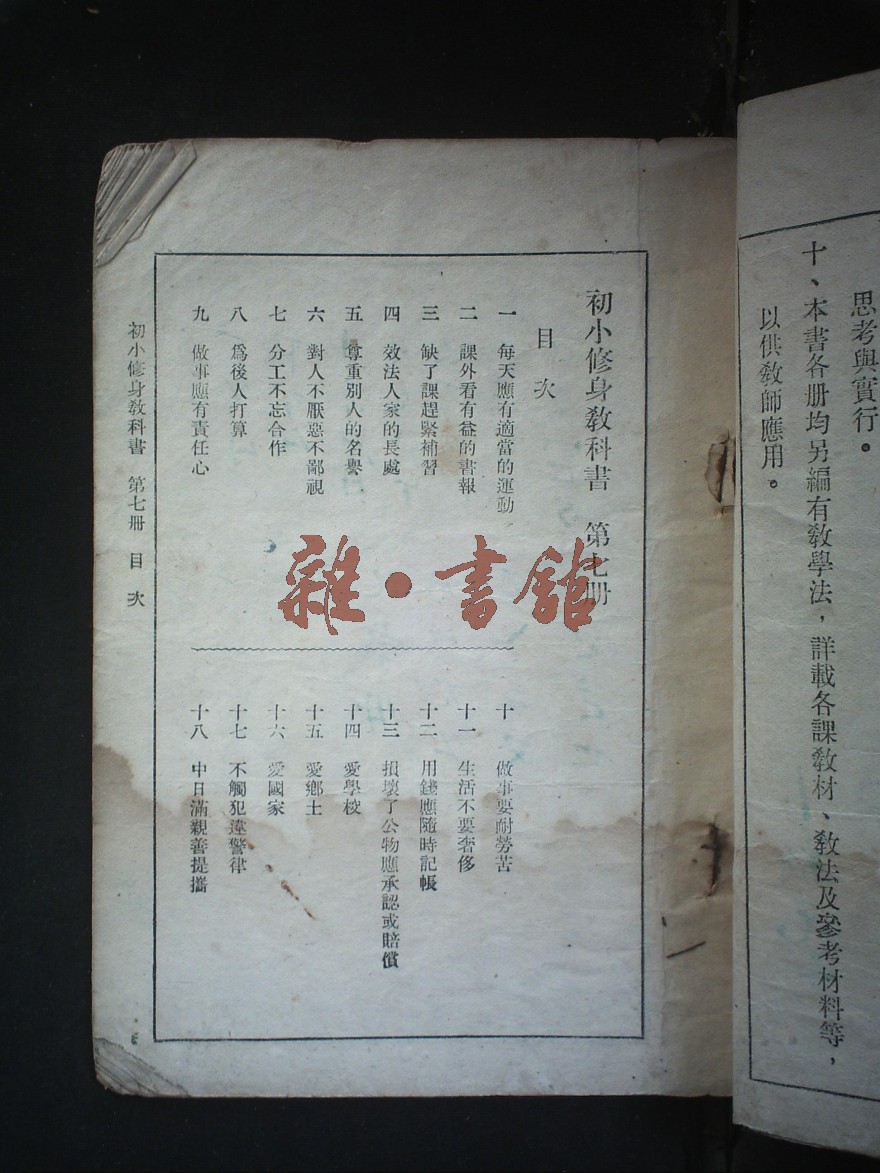 思考與實行。
十、本書各册均另編有敎學法，詳載各課敎材、敎法及參考材料等，
以供敎師應用。
初小修身敎科書　第七册
目次
一　每天應有適當的運動
二　課外看有益的書報
三　缺了課趕緊補習
四　效法人家的長處
五　尊重別人的名譽
六　對人不厭惡不鄙視
七　分工不忘合作
八　爲後人打算
九　做事應有責任心
十　做事要耐勞苦
十一　生活不要奢侈
十二　用錢應隨時記帳
十三　損壞了公物應承認或賠償
十四　愛學校
十五　愛鄉土
十六　愛國家
十七　不觸犯違警律
十八　中日滿親善提攜
初小修身敎科書　第七册　目次
雜・書館